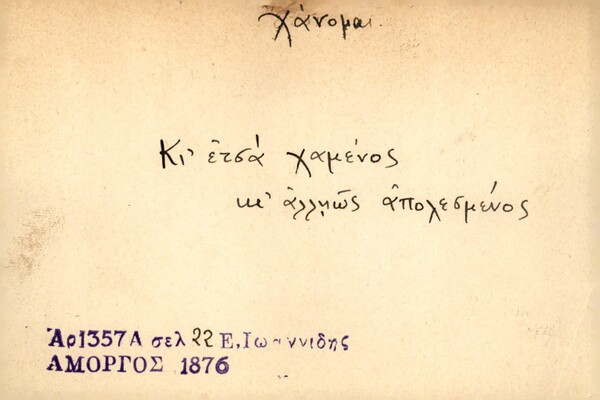 χάνομαι
Κι' ἐτσά χαμένος
κι' ἀλλιῶς ἀπολεσμένος
Ἀρ1357Α σελ 22 Ε.Ιωαννιδης
ΑΜΟΡΓΟΣ 1876